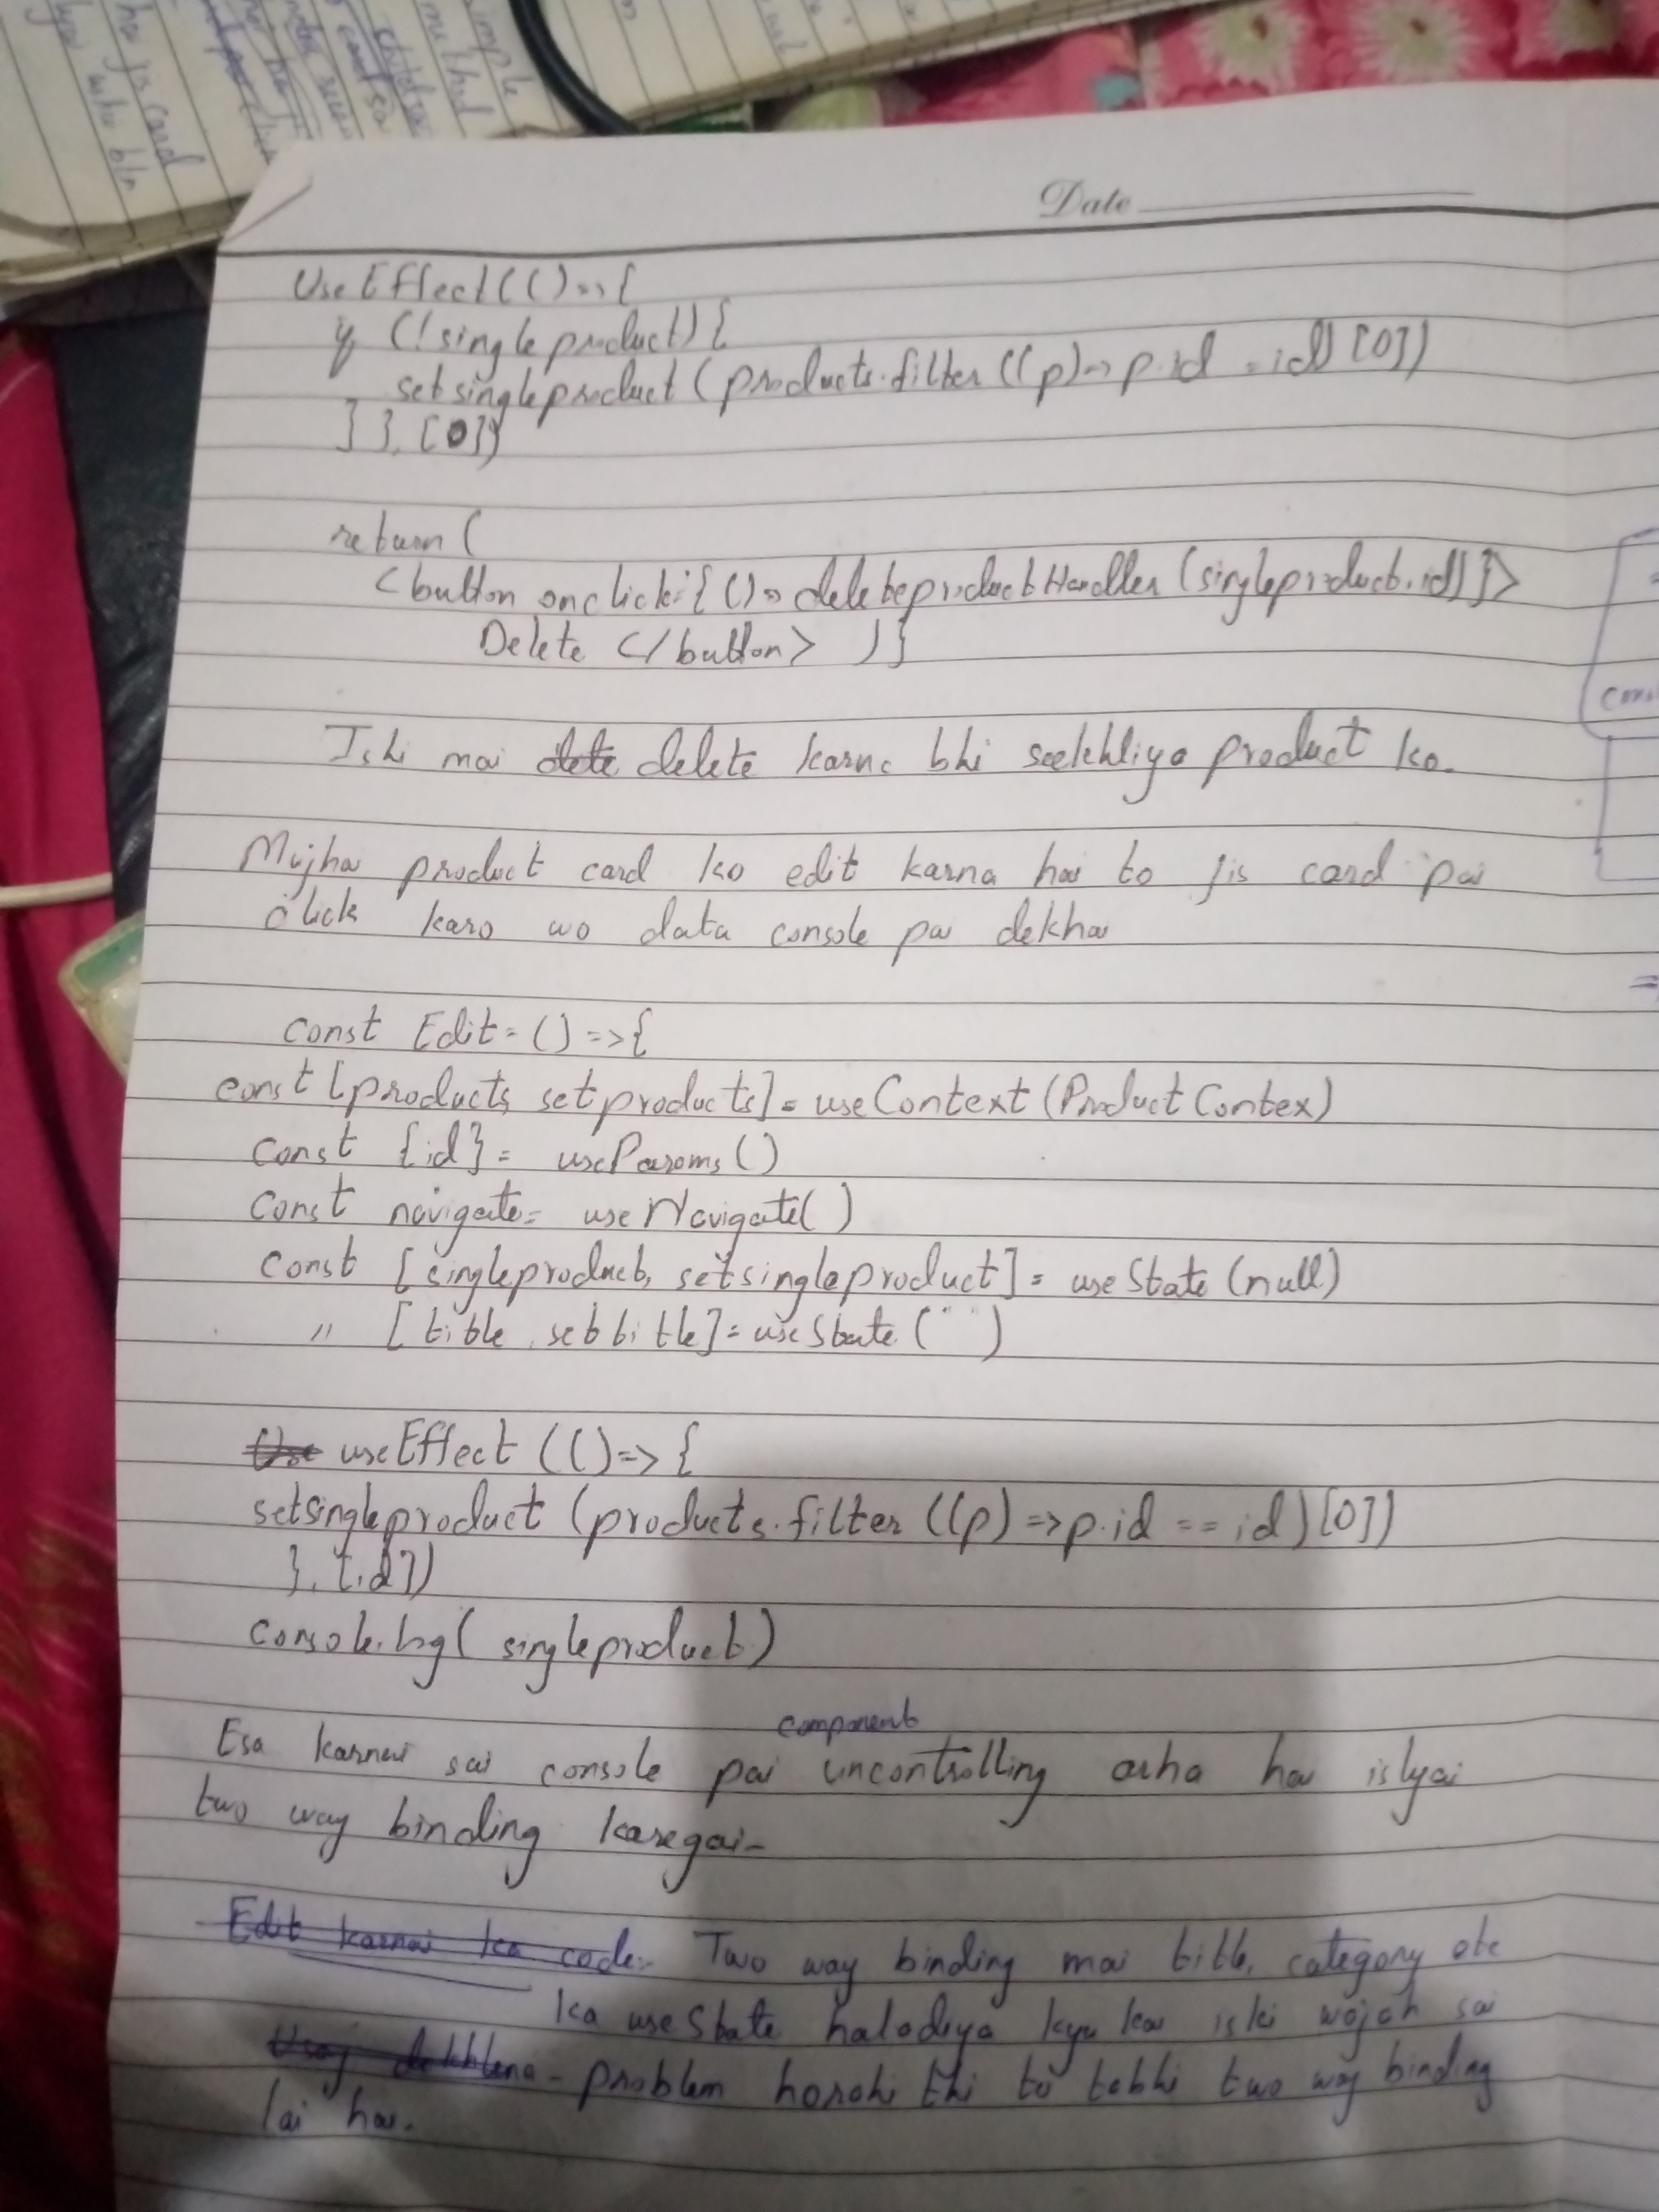 Date
UseEffect(()=>{
if (!singleproduct){
setsingleproduct (products.filter ((p)=>p.id = id) [0])
} }, [0])
return (
<button onclick={()=> deleteproductHandler (singleproduct.id)}>
Delete </button> )}
Ishi mai delete delete karna bhi seekhliya product ko.
Mujhai product card ko edit karna hai to jis card pai
click karo wo data console pai dekhai
const Edit = () =>{
const [products, setproducts] = useContext (ProductContex)
const {id} = useParoms ()
const navigate = useNavigate( )
const [singleproduct, setsingleproduct] = useState (null)
" [title, settitle] = useState (" ")
Use useEffect (()=> {
setsingleproduct (products.filter ((p) => p.id == id ) [0])
}, [id])
console.log( singleproduct )
component
Esa karnai sai console pai uncontrolling arha hai islyai
two way binding karegai-
Edit karnai ka code:- Two way binding mai title, category etc
ka useState haladiya kyu kai iski wajah sai
dekhlena - problem horahi thi to tabhi two way binding
lai hai.
simple
method
card